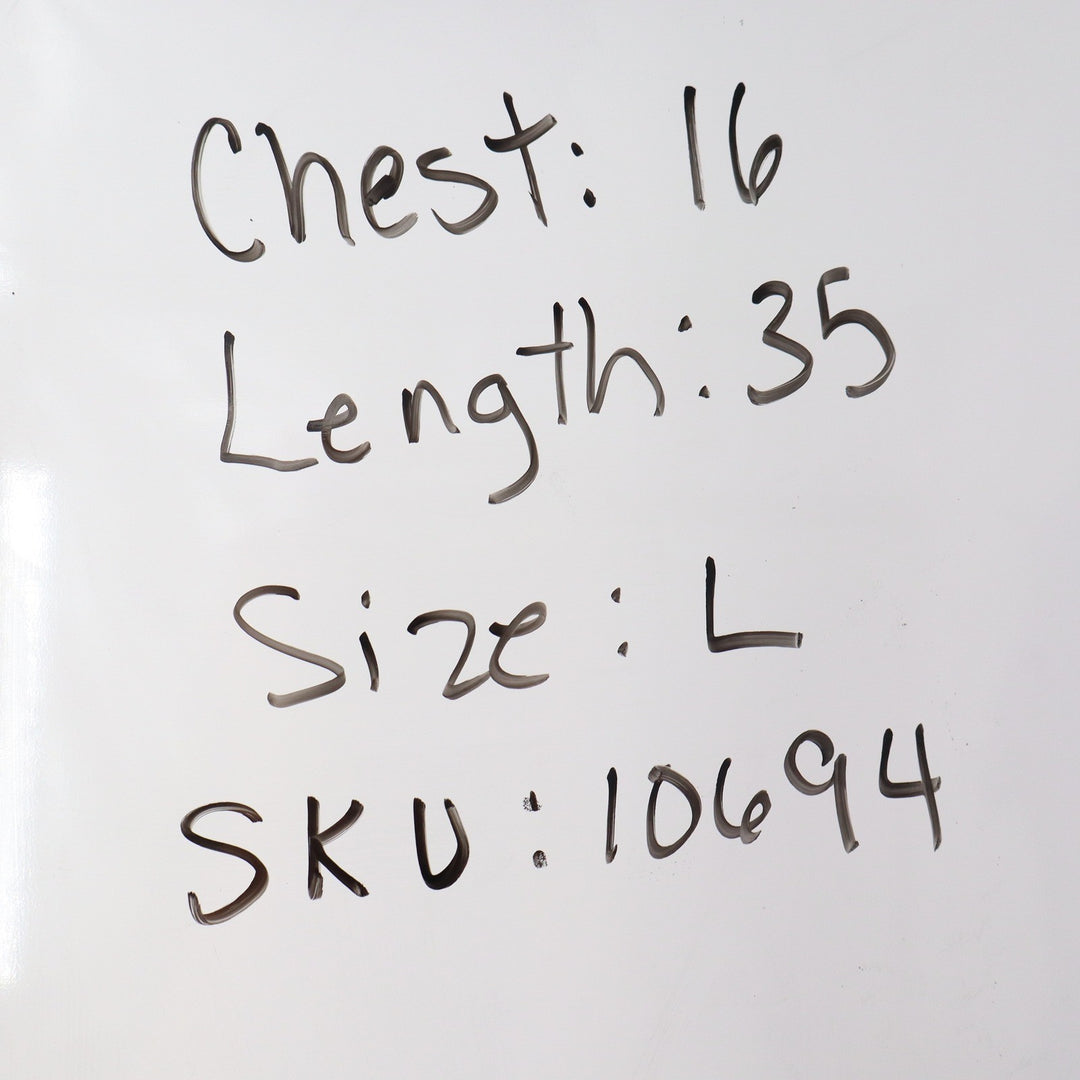 Chest: 16
Length: 35
Size: L
SKU: 10694